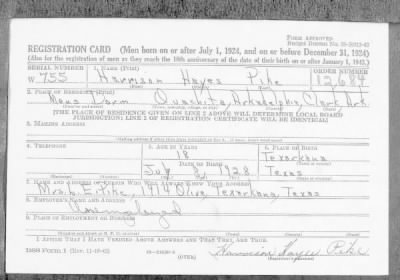 REGISTRATION CARD (Men born on or after July 1, 1924, and on or before December 31, 1924)
(Also for the registration of men as they reach the 18th anniversary of the date of their birth on or after January 1, 1943.)
SERIAL NUMBER 1. NAME (Print) ORDER NUMBER
W 755 Harrison Hayes Pike 12,684
2. PLACE OF RESIDENCE (Print)
Mens Dorm Ouachita, Arkadelphia, Clark Ark.
[THE PLACE OF RESIDENCE GIVEN ON LINE 2 ABOVE WILL DETERMINE LOCAL BOARD
JURISDICTION; LINE 2 OF REGISTRATION CERTIFICATE WILL BE IDENTICAL]
3. MAILING ADDRESS
4. TELEPHONE 5. AGE IN YEARS 6. PLACE OF BIRTH
18 Texarkana
DATE OF BIRTH
1928 Texas
7. NAME AND ADDRESS OF PERSON WHO WILL ALWAYS KNOW YOUR ADDRESS
Pike, 1914 Olive, Texarkana, Texas
8. EMPLOYER'S NAME AND ADDRESS
Unemployed
9. PLACE OF EMPLOYMENT OR BUSINESS
I AFFIRM THAT I HAVE VERIFIED ABOVE ANSWERS AND THAT THEY ARE TRUE.
(OVER) Harrison Hayes Pike